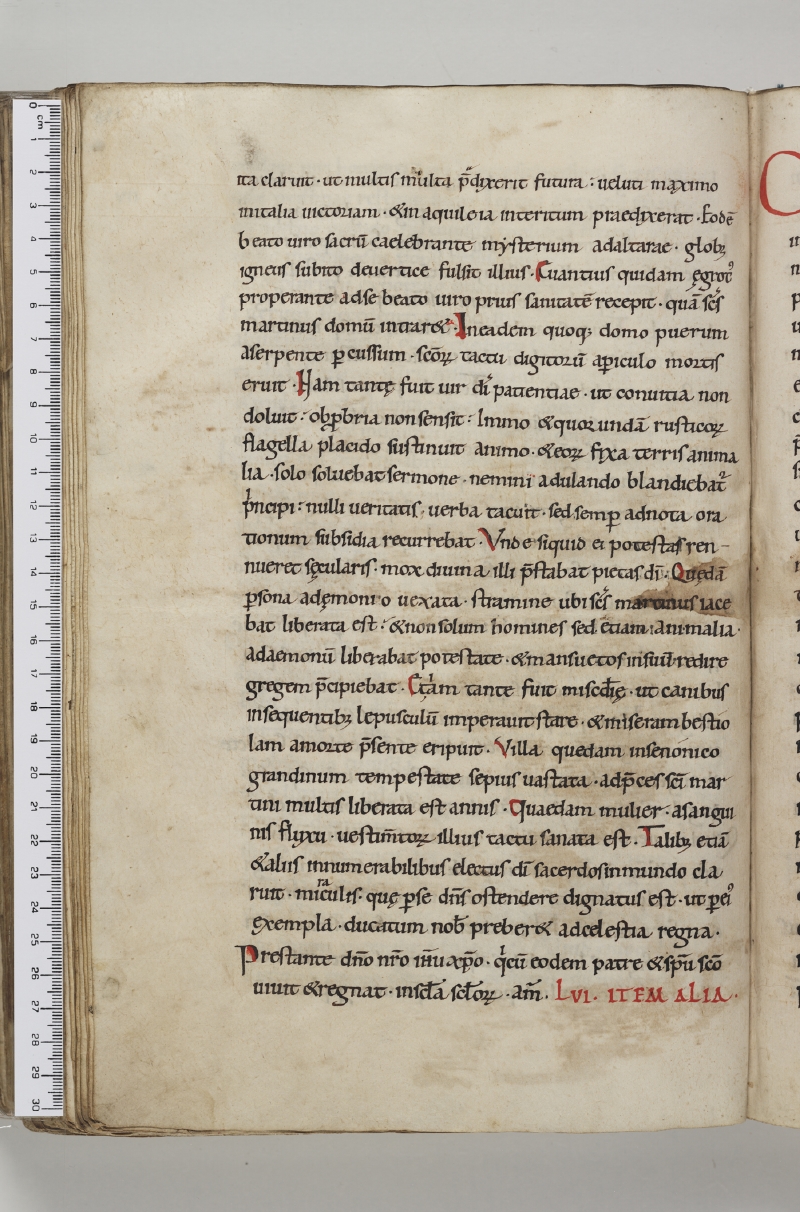 ita claruit · ut multis multa p̄dixerit futura : ueluti maximo
initalia uictoriam · &in aquileia interitum praedixerat · Eodē
beato uiro sacrū caelebrante mysterium adaltare · globꝫ
igneus subito deuertice fulsit illius · Euantius quidam ęgrot᷒
properante adse beato uiro prius sanitatē recepit · quā scs̄
martinus domū intrar& · Ineadem quoqꝫ domo puerum
aserpente ꝑcussum · scōꝝ tactu digitorū apiculo mortis
eruit · Nam tantę fuit uir di patientiae · ut conuitia non
doluit : obꝓbria nonsensit : Immo &quorundā rusticoꝝ
flagella placido sustinuit animo · &eoꝝ fixa terris anima
lia · solo soluebat sermone · nemini adulando blandiebat᷑
pncipi : nulli ueritatis · uerba tacuit · sed semꝑ adnota ora
tionum subsidia recurrebat · Vnde siquid ei potestas ren-
nueret sęcularis · mox diuina illi p̄stabat pietas dī · Quędā
ꝑsona adęmonio uexata · stramine ubi scs̄ martinus iace
bat liberata est : &nonsolum homines sed etiam animalia ·
adaemonū liberabat potestate · &mansuetos insuū redire
gregem p̄cipiebat · Etiam tantę fuit miscdię · ut canibus
insequentibꝫ lepusculū imperauit stare · &miseram bestio
lam amorte p̄sente eripuit · Villa quedam insenonico
grandinum tempestate sepius uastata · adp̄ces scī mar
tini multis liberata est annis · Quaedam mulier · asangui
nis fluxu · uestim̄toꝝ illius tactu sanata est · Talibꝫ etiā
&aliis innumerabilibus electus dī sacerdos inmundo cla
ruit · miraculis · quę ꝑse dn̄s ostendere dignatus est · ut ꝑ ei᷒
exempla · ducatum nob̄ preber& adcelestia regna ·
Prestante dn̄o nr̄o ih̄u xp̄o · qi cū eodem patre &sp̄u scō
uiuit &regnat · inscła scłoꝝ · am̄ · LVI · ITEM ALIA ·